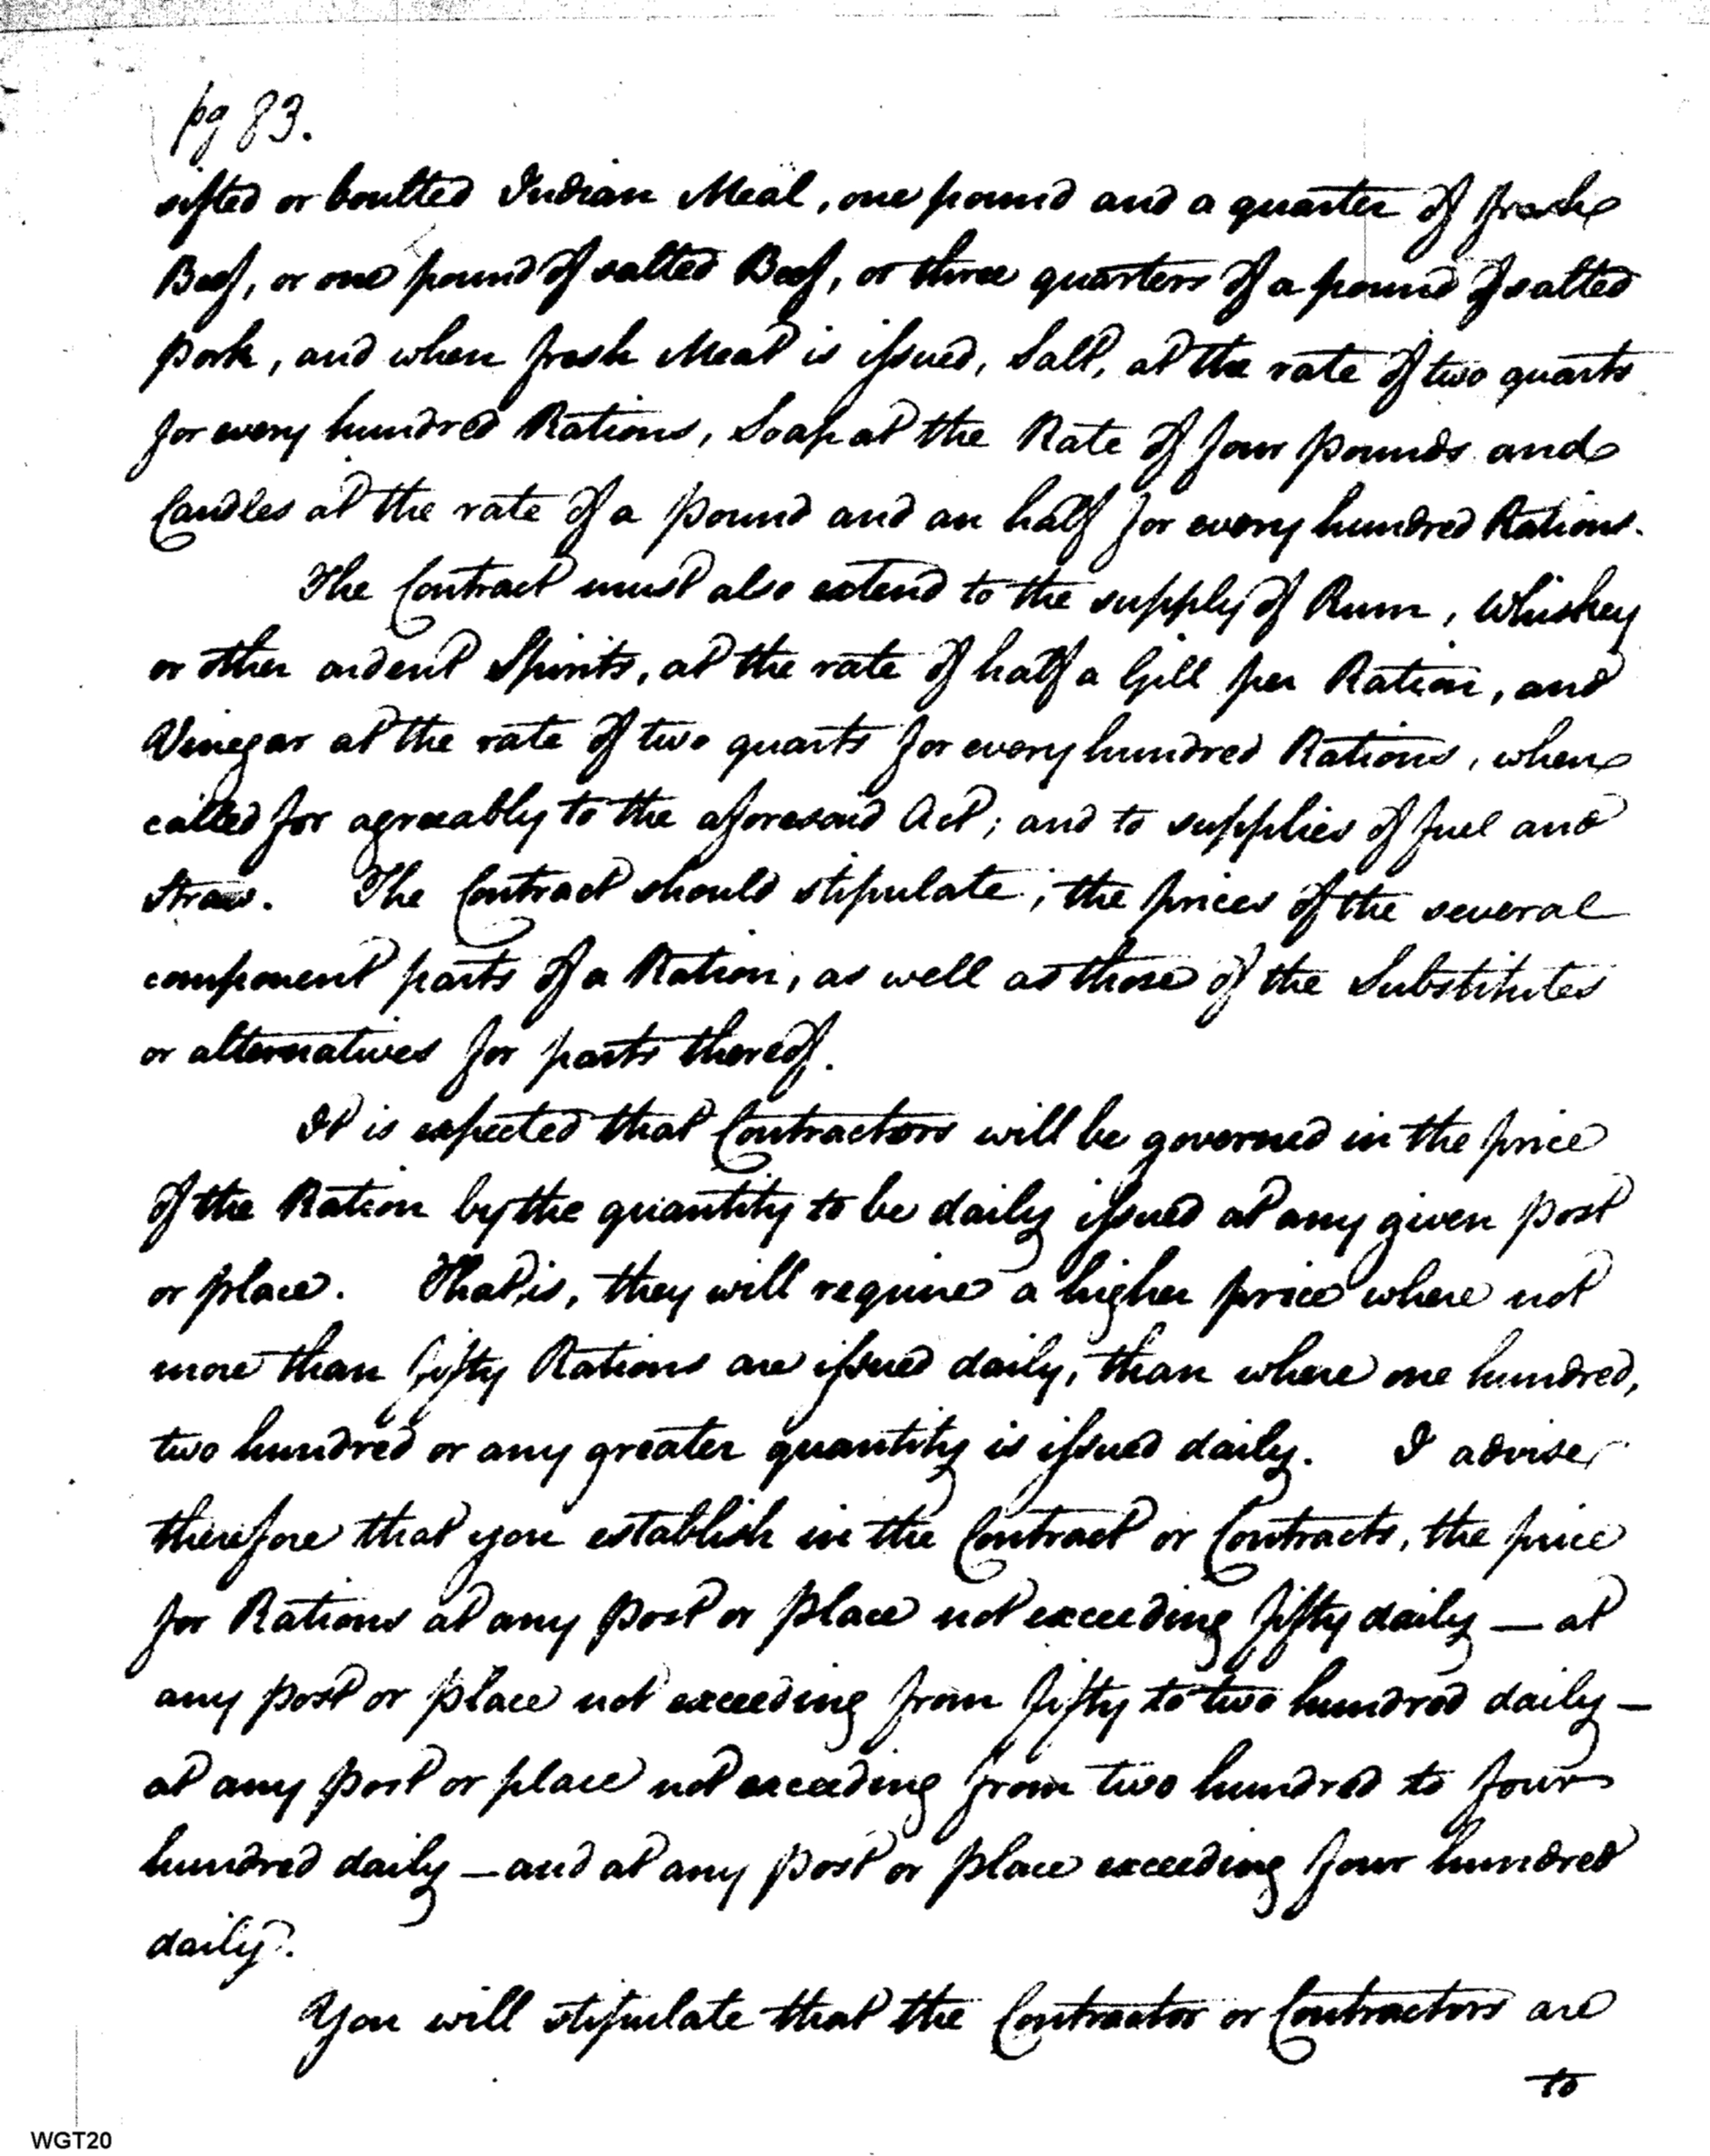 pg 83.
sifted or boulted Indian Meal, one pound and a quarter of fresh
Beef, or one pound of salted Beef, or three quarters of a pound of salted
Pork, and when fresh Meat is issued, Salt, at the rate of two quarts
for every hundred Rations, Soap at the Rate of four pounds and
Candles at the rate of a pound and an half for every hundred Rations.
The Contract must also extend to the supply of Rum, Whiskey
or other ardent Spirits, at the rate of half a Gill per Ration, and
Vinegar at the rate of two quarts for every hundred Rations, when
called for agreeably to the aforesaid Act; and to supplies of fuel and
Straw. The Contract should stipulate, the prices of the several
component parts of a Ration, as well as those of the Substitutes
or alternatives for parts thereof.
It is expected that Contractors will be governed in the price
of the Ration by the quantity to be daily issued at any given post
or place. That is, they will require a higher price where not
more than fifty Rations are issued daily, than where one hundred,
two hundred or any greater quantity is issued daily. I advise
therefore that you establish in the Contract or Contracts, the price
for Rations at any post or place not exceeding fifty daily — at
any post or place not exceeding from fifty to two hundred daily —
at any post or place not exceeding from two hundred to four
hundred daily — and at any post or place exceeding four hundred
daily.
You will stipulate that the Contractor or Contractors are
to
WGT20